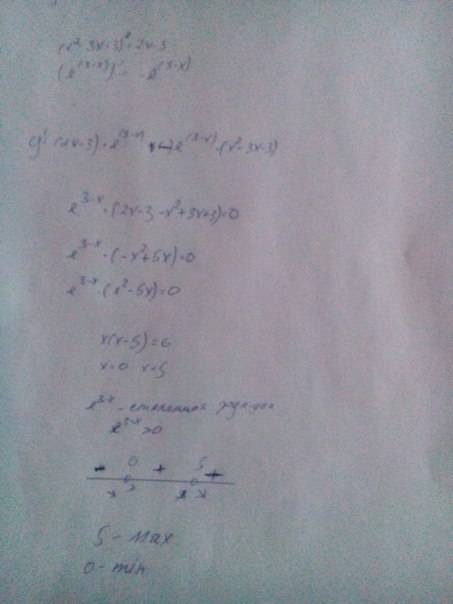 (x²-3x-3)' = 2x-3
(e^(3-x))' = -e^(3-x)
y' (2x-3) · e^(3-x) + (-) e^(3-x) · (x²-3x-3)
e^3-x · (2x-3-x²+3x+3)=0
e^3-x · (-x²+5x)=0
e^3-x · (x²-5x)=0
x(x-5)=0
x=0 x=5
e^3-x - степенная функция
e^3-x >0
- 0 + 5 +
5 - max
0 - min